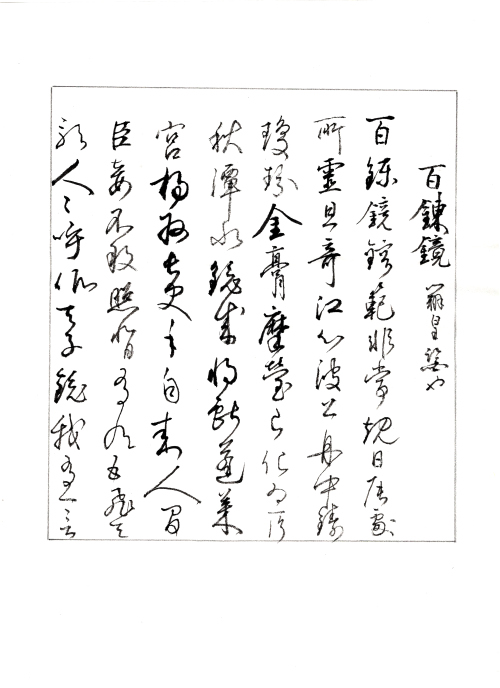 百鍊鏡 辨皇王鑒也
百鍊鏡鎔範非常規日辰處
所靈且奇江心波上舟中鑄
瓊粉金膏磨瑩已化為一片
秋潭水鏡成將獻蓬萊
宮揚州長吏手自人間
臣妾不敢照背有九五飛天
龍人々呼為天子鏡我有一言